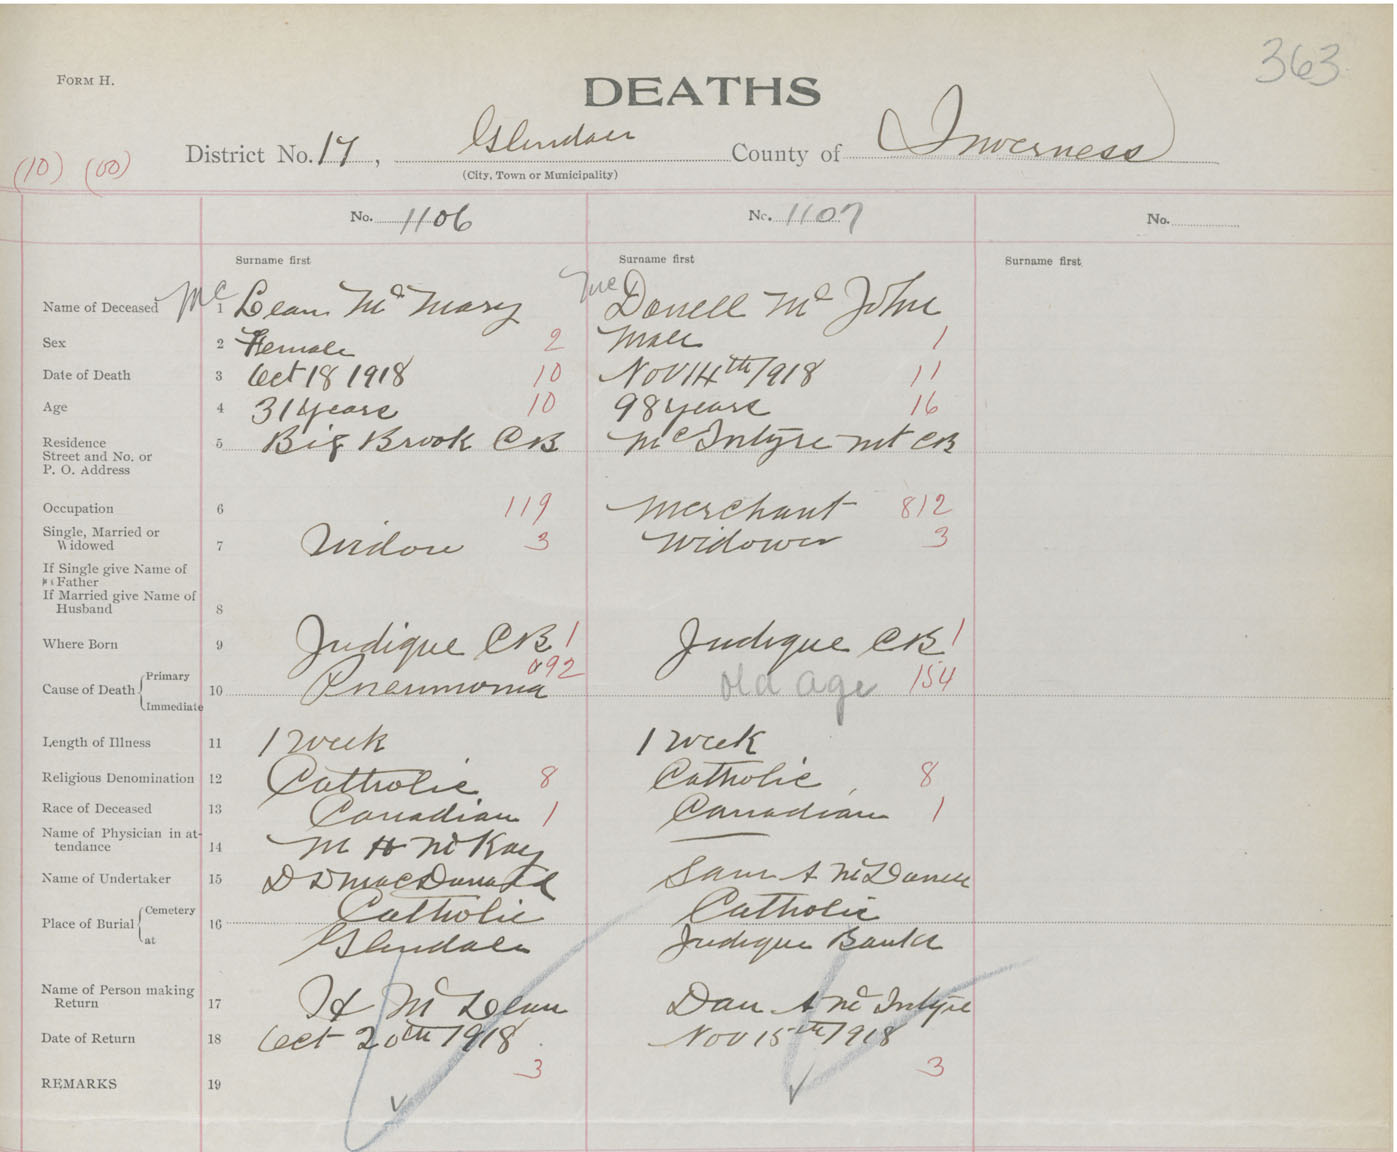 363
FORM H.
DEATHS
District No. 17, Glendale County of Inverness
(City, Town or Municipality)
(10) (00)
No. 1106 No. 1107 No.
Surname first Surname first Surname first
Name of Deceased 1 Mc Lean Mc Mary Mc Donell Mc John
Sex 2 Female 2 Male 1
Date of Death 3 Oct 18 1918 10 Nov 14th/1918 11
Age 4 31 years 10 98 years 16
Residence 5 Big Brook CB McIntyre Mt CB
Street and No. or
P. O. Address
Occupation 6 119 Merchant 812
Single, Married or
Widowed 7 Widow 3 Widower 3
If Single give Name of
Father
If Married give Name of
Husband 8
Where Born 9 Judique CB 1 Judique CB 1
Primary 92
Cause of Death 10 Pneumonia old age 154
Immediate
Length of Illness 11 1 week 1 week
Religious Denomination 12 Catholic 8 Catholic 8
Race of Deceased 13 Canadian 1 Canadian 1
Name of Physician in at-
tendance 14 M H McKay
Name of Undertaker 15 D D MacDonald Sam A McDonell
Cemetery Catholic Catholic
Place of Burial 16
at Glendale Judique Banks
Name of Person making
Return 17 H McLean Dan A McIntyre
Date of Return 18 Oct 20th/1918 Nov 15th/1918
3 3
REMARKS 19